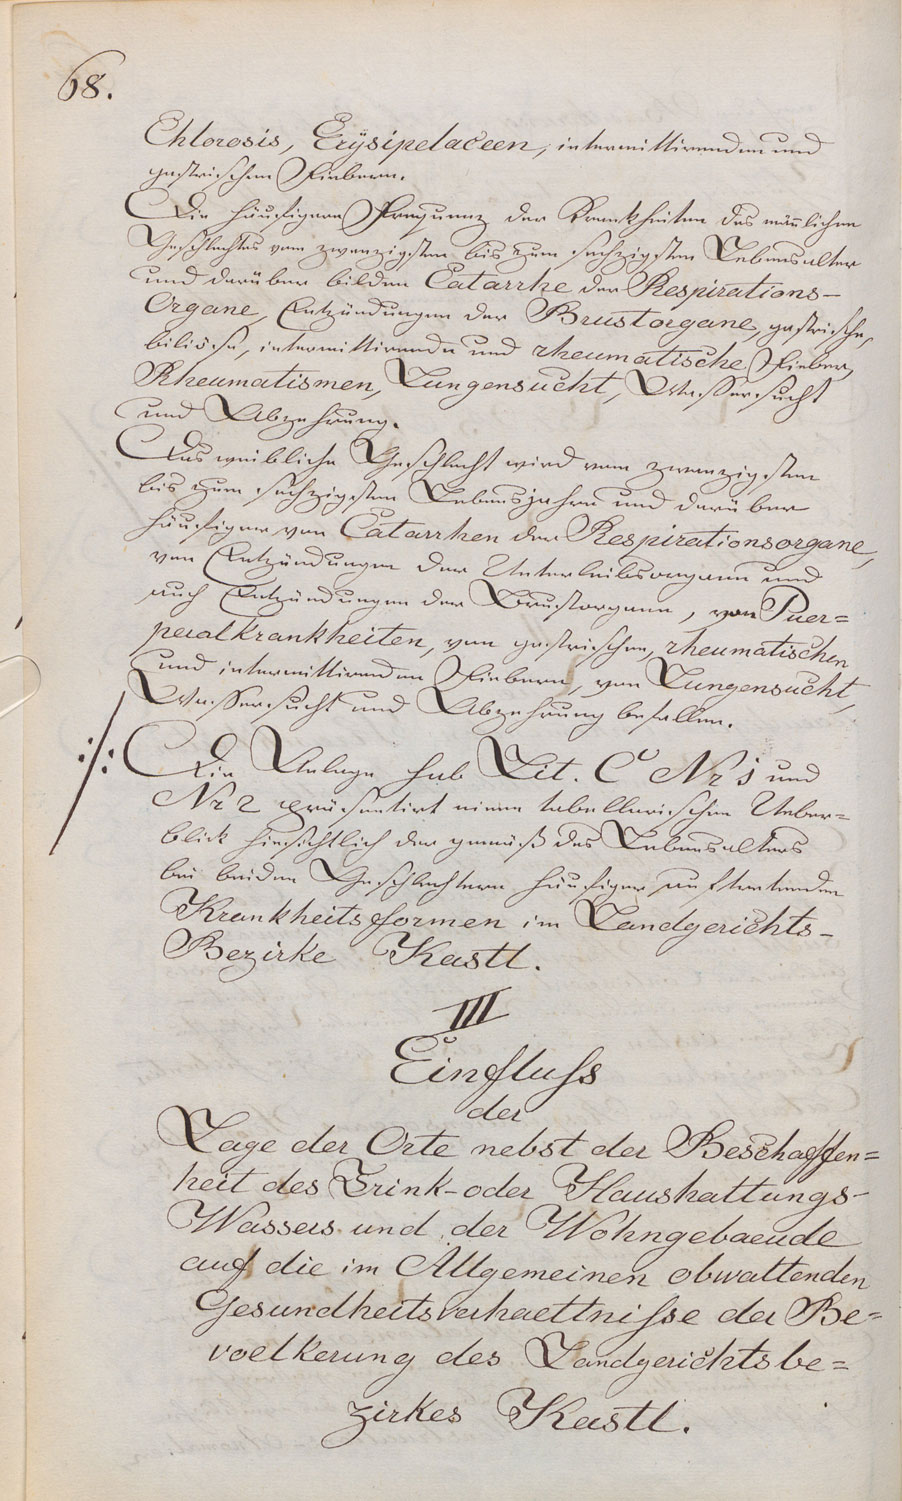 68.
Chlorosis, Erÿsipelaceen, intermittirenden und
gastrischen Fiebern.
Die häufigere Frequenz der Krankheiten des mänlichen
Geschlechtes vom zwanzigsten bis zum sechzigsten Lebensalter
und darüber bilden Catarrhe der Respirations-
Organe, Entzündungen der Brustorgane, gastrische,
biliöse, intermittirende und rheumatische Fieber,
Rheumatismen, Lungensucht, Wassersucht
und Abzehrung.
Das weibliche Geschlecht wird vom zwanzigsten
bis zum sechzigsten Lebensjahre und darüber
häufiger von Catarrhen der Respirationsorgane,
von Entzündungen der Unterleibsorgane und
auch Entzündungen der Brustorgane, von Puer=
peralkrankheiten, von gastrischen, rheumatischen
und intermittirenden Fiebern, von Lungensucht,
Wassersucht und Abzehrung befallen.
Die Anlage sub Lit. C Nr 1 und
Nr 2 präsentirt einen tabellarischen Ueber=
blick hinsichtlich der gemäß des Lebensalters
bei beiden Geschlechtern häufiger auftretenden
Krankheitsformen im Landgerichts-
Bezirke Kastl.
III
Einfluss
der
Lage der Orte nebst der Beschaffen=
heit des Trink- oder Haushaltungs-
Wassers und der Wohngebaeude
auf die im Allgemeinen obwaltenden
Gesundheitsverhaeltnisse der Be=
voelkerung des Landgerichtsbe=
zirkes Kastl.